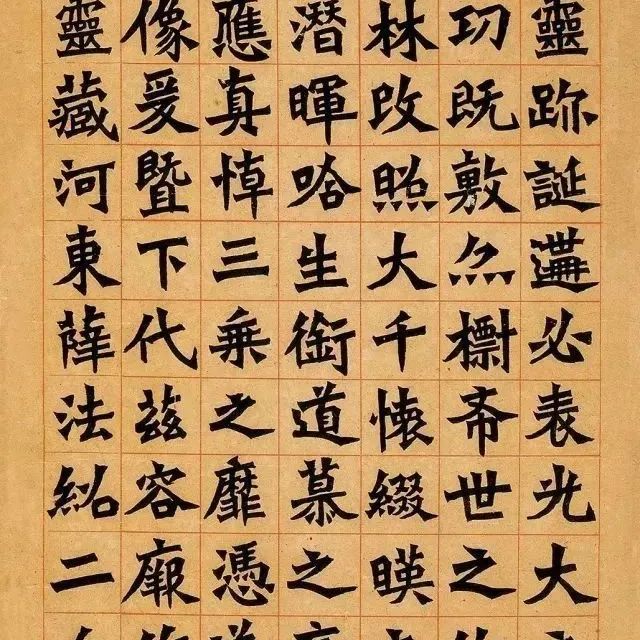 靈跡誕遘必表光大
功既敷亦標希世之
林改照大千懷綴暎
潛暉唅生銜道慕之
應真悼三乘之靡憑
像爰暨下代茲容廓
靈藏河東薛法紹二